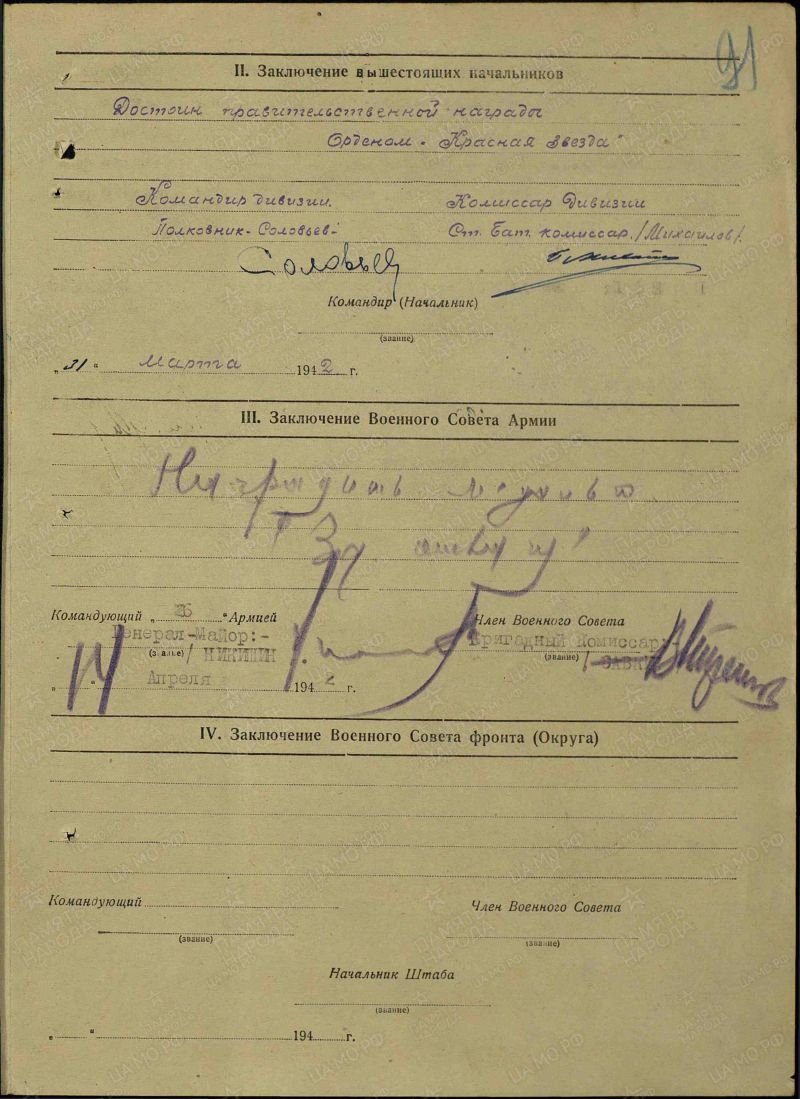 91
II. Заключение вышестоящих начальников
Достоин правительственной награды
Орденом - Красная Звезда"
Командир дивизии. Комиссар Дивизии
Полковник - Соловьев - Ст. Бат. комиссар. /Михайлов/.
Соловьев
Командир (Начальник)
(звание)
„31" марта 1942 г.
III. Заключение Военного Совета Армии
Наградить медалью
"За отвагу"
Командующий „26" Армией Член Военного Совета
Генерал-Майор:- Бригадный Комиссар:-
(звание) / НИКИШИН (звание) /
„14" Апреля 1942 г.
IV. Заключение Военного Совета фронта (Округа)
Командующий Член Военного Совета
(звание) (звание)
Начальник Штаба
(звание)
„ " 194 г.